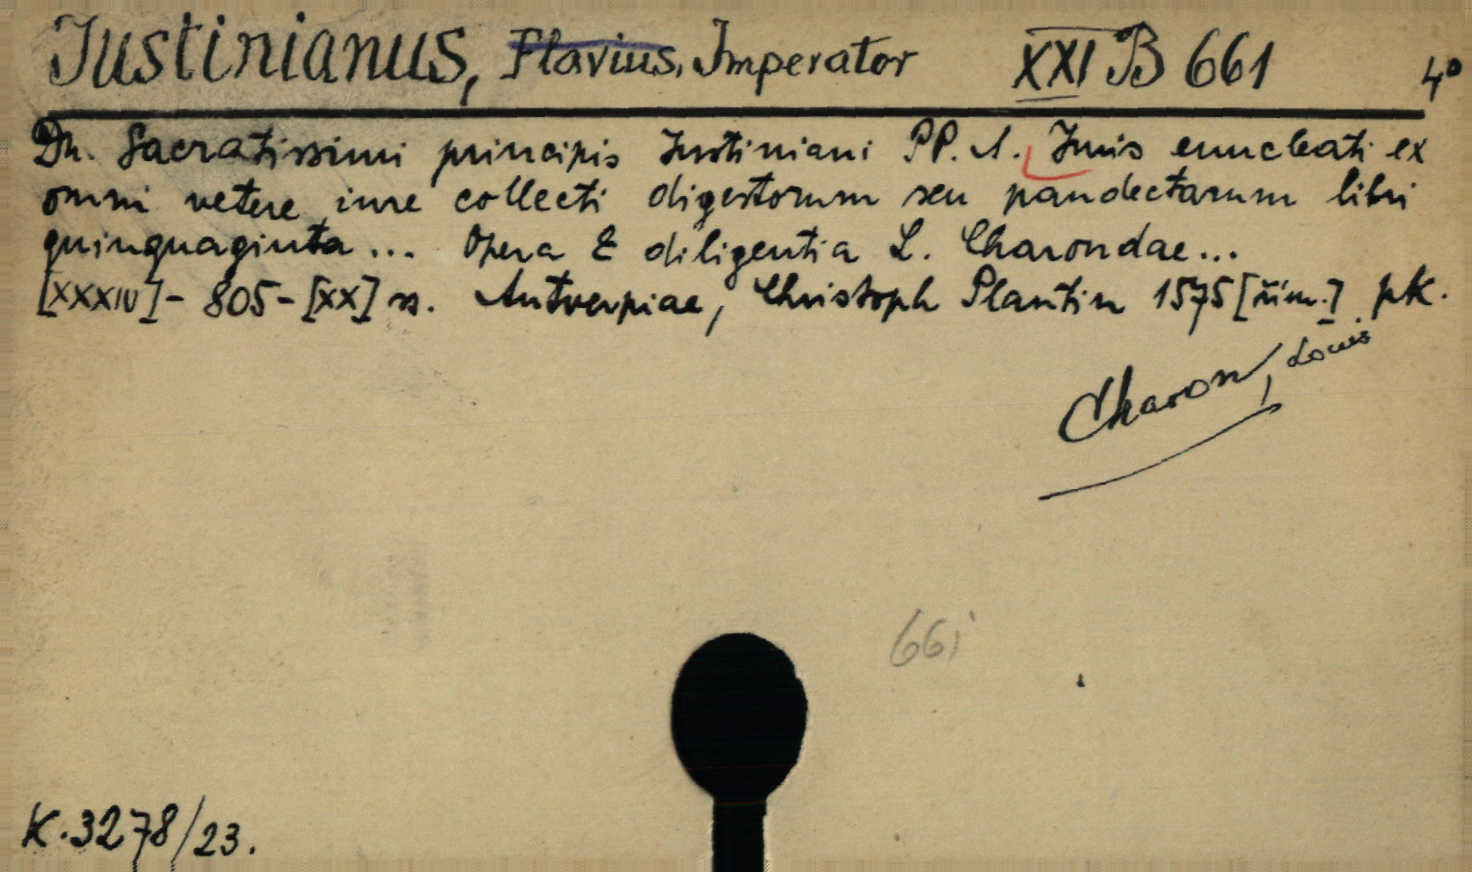 Iustinianus, Flavius, Imperator XXI B 661 4°
Dn. Sacratissimi principis Iustiniani PP. A. Iuris enucleati ex
omni vetere iure collecti digestorum seu pandectarum libri
quinquaginta... Opera & diligentia L. Charondae...
[XXXIV]-805-[XX] s. Antverpiae, Christoph Plantin 1575 pk.
Charon, Louis
661
K.3278/23.